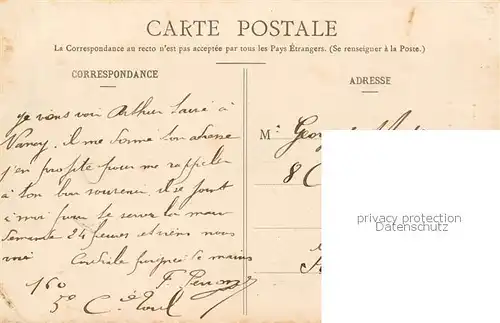 CARTE POSTALE
La Correspondance au recto n'est pas acceptée par tous les Pays Étrangers. (Se renseigner à la Poste.)
CORRESPONDANCE
ADRESSE
Je viens voir Arthur à
Nancy. il me donne ton adresse
j'en profite pour me rappeler
à ton bon souvenir. il se joint
à moi pour te serrer la main
demande 24 heures et viens nous
voir Cordiale poignée de mains
F.
160
5e Cie Toul
M.
8
privacy protection